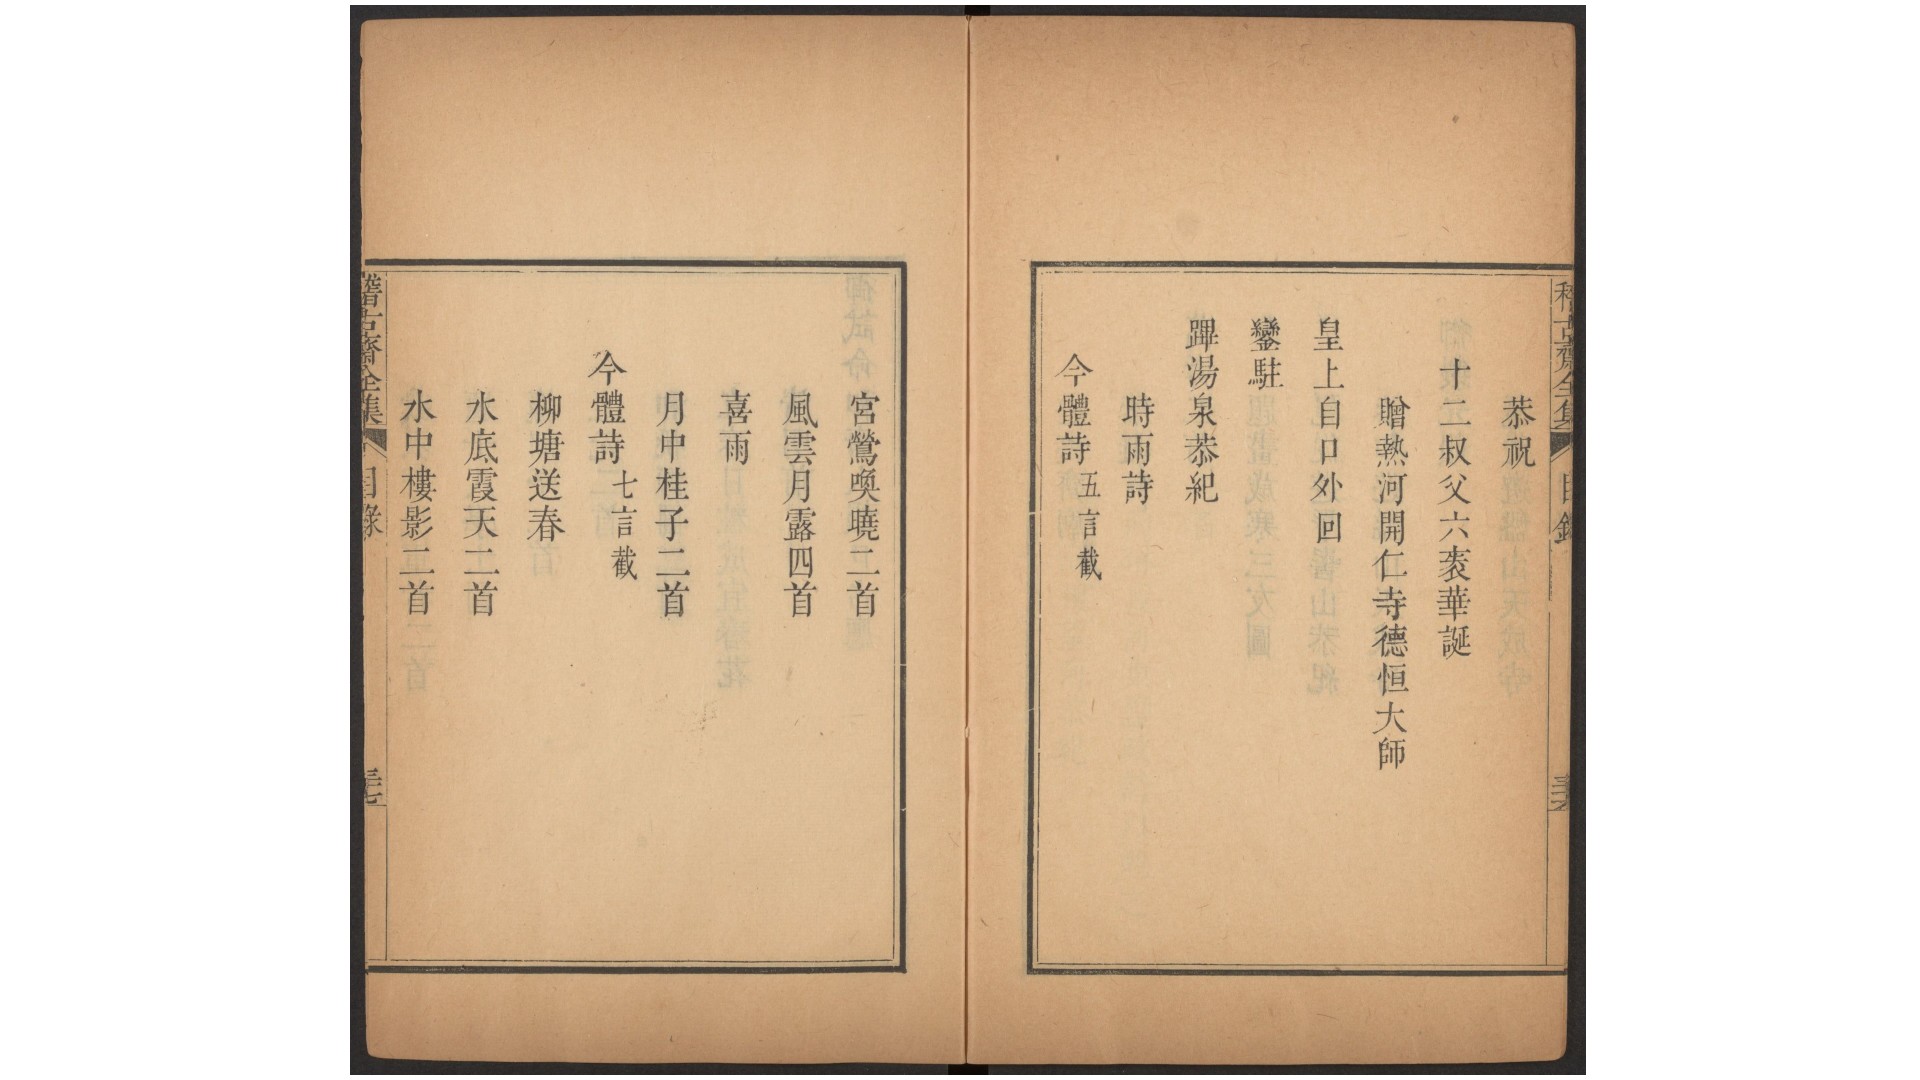 稽古齋全集 目錄
恭祝
十二叔父六袠華誕
贈熱河開仁寺德恒大師
皇上自口外回
鑾駐
蹕湯泉恭紀
時雨詩
今體詩五言截
宮鶯喚曉二首
風雲月露四首
喜雨
月中桂子二首
今體詩七言截
柳塘送春
水底霞天二首
水中樓影二首
稽古齋全集 目錄